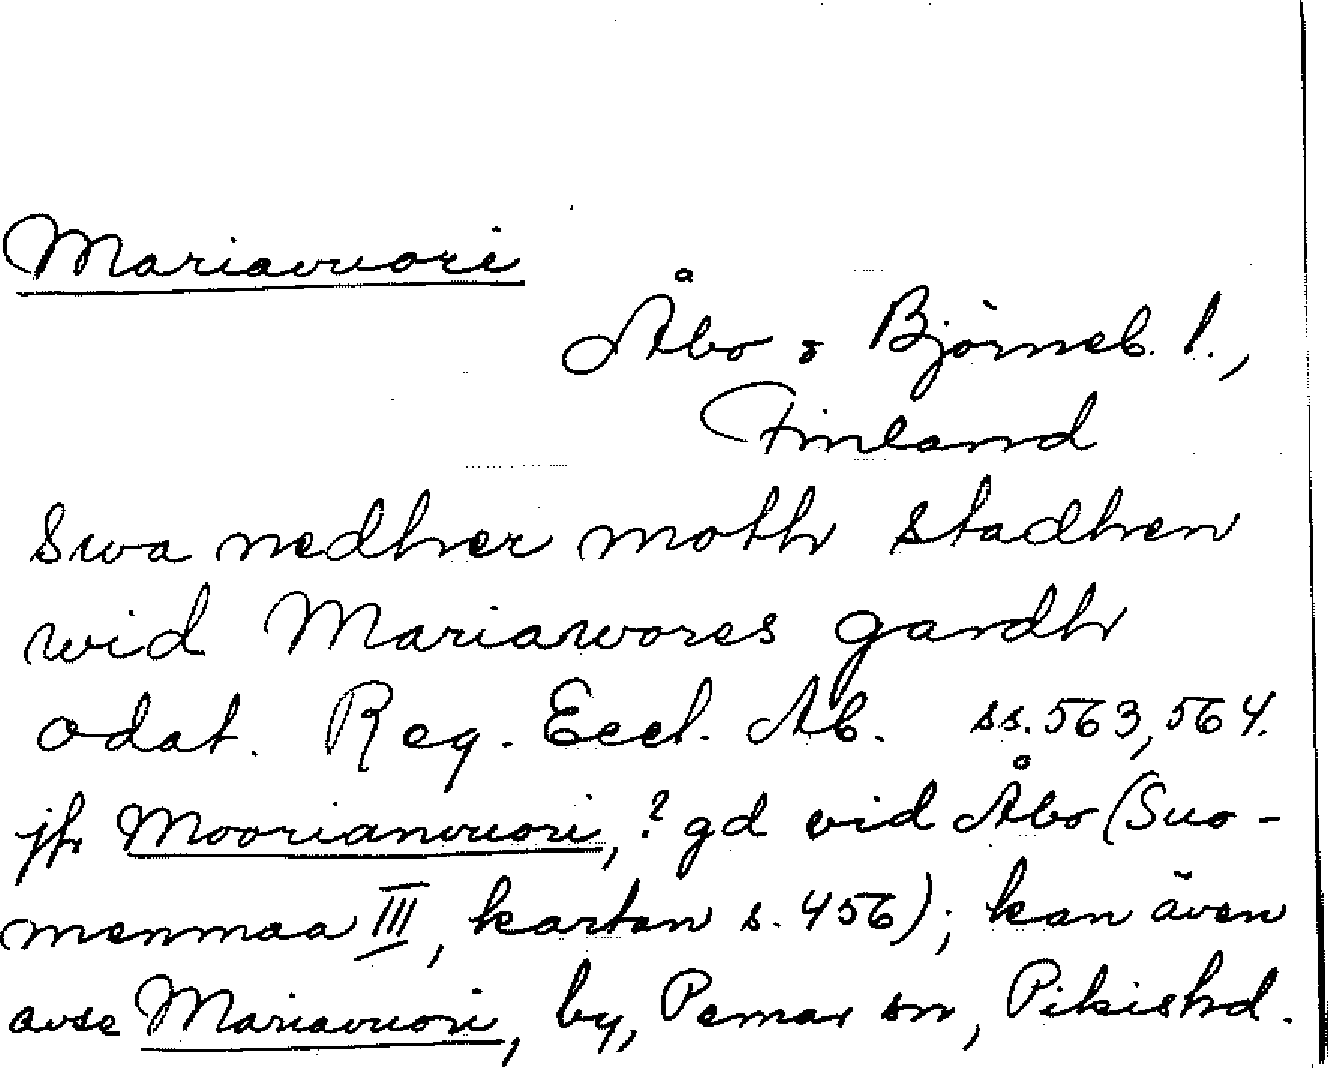 Mariavuori
Åbo o Björneb. l.,
Finland
Swa nedher moth stadhen
wid Mariawores gardh
odat. Reg. Eccl. Ab. ss. 563, 564.
jfr Moorianvuori, ? gd vid Åbo (Suo-
menmaa III, kartan s. 456); kan även
avse Mariavuori, by, Pemar sn, Pikishd.